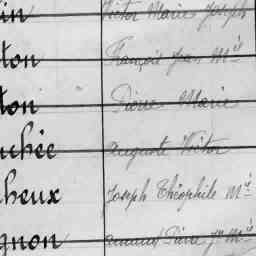 in Victor Marie Joseph
ton François Jean Mie
ton Pierre Marie
uchée Auguste Victor
heux Joseph Théophile Mie
gnon Armand Pierre Jn Mie